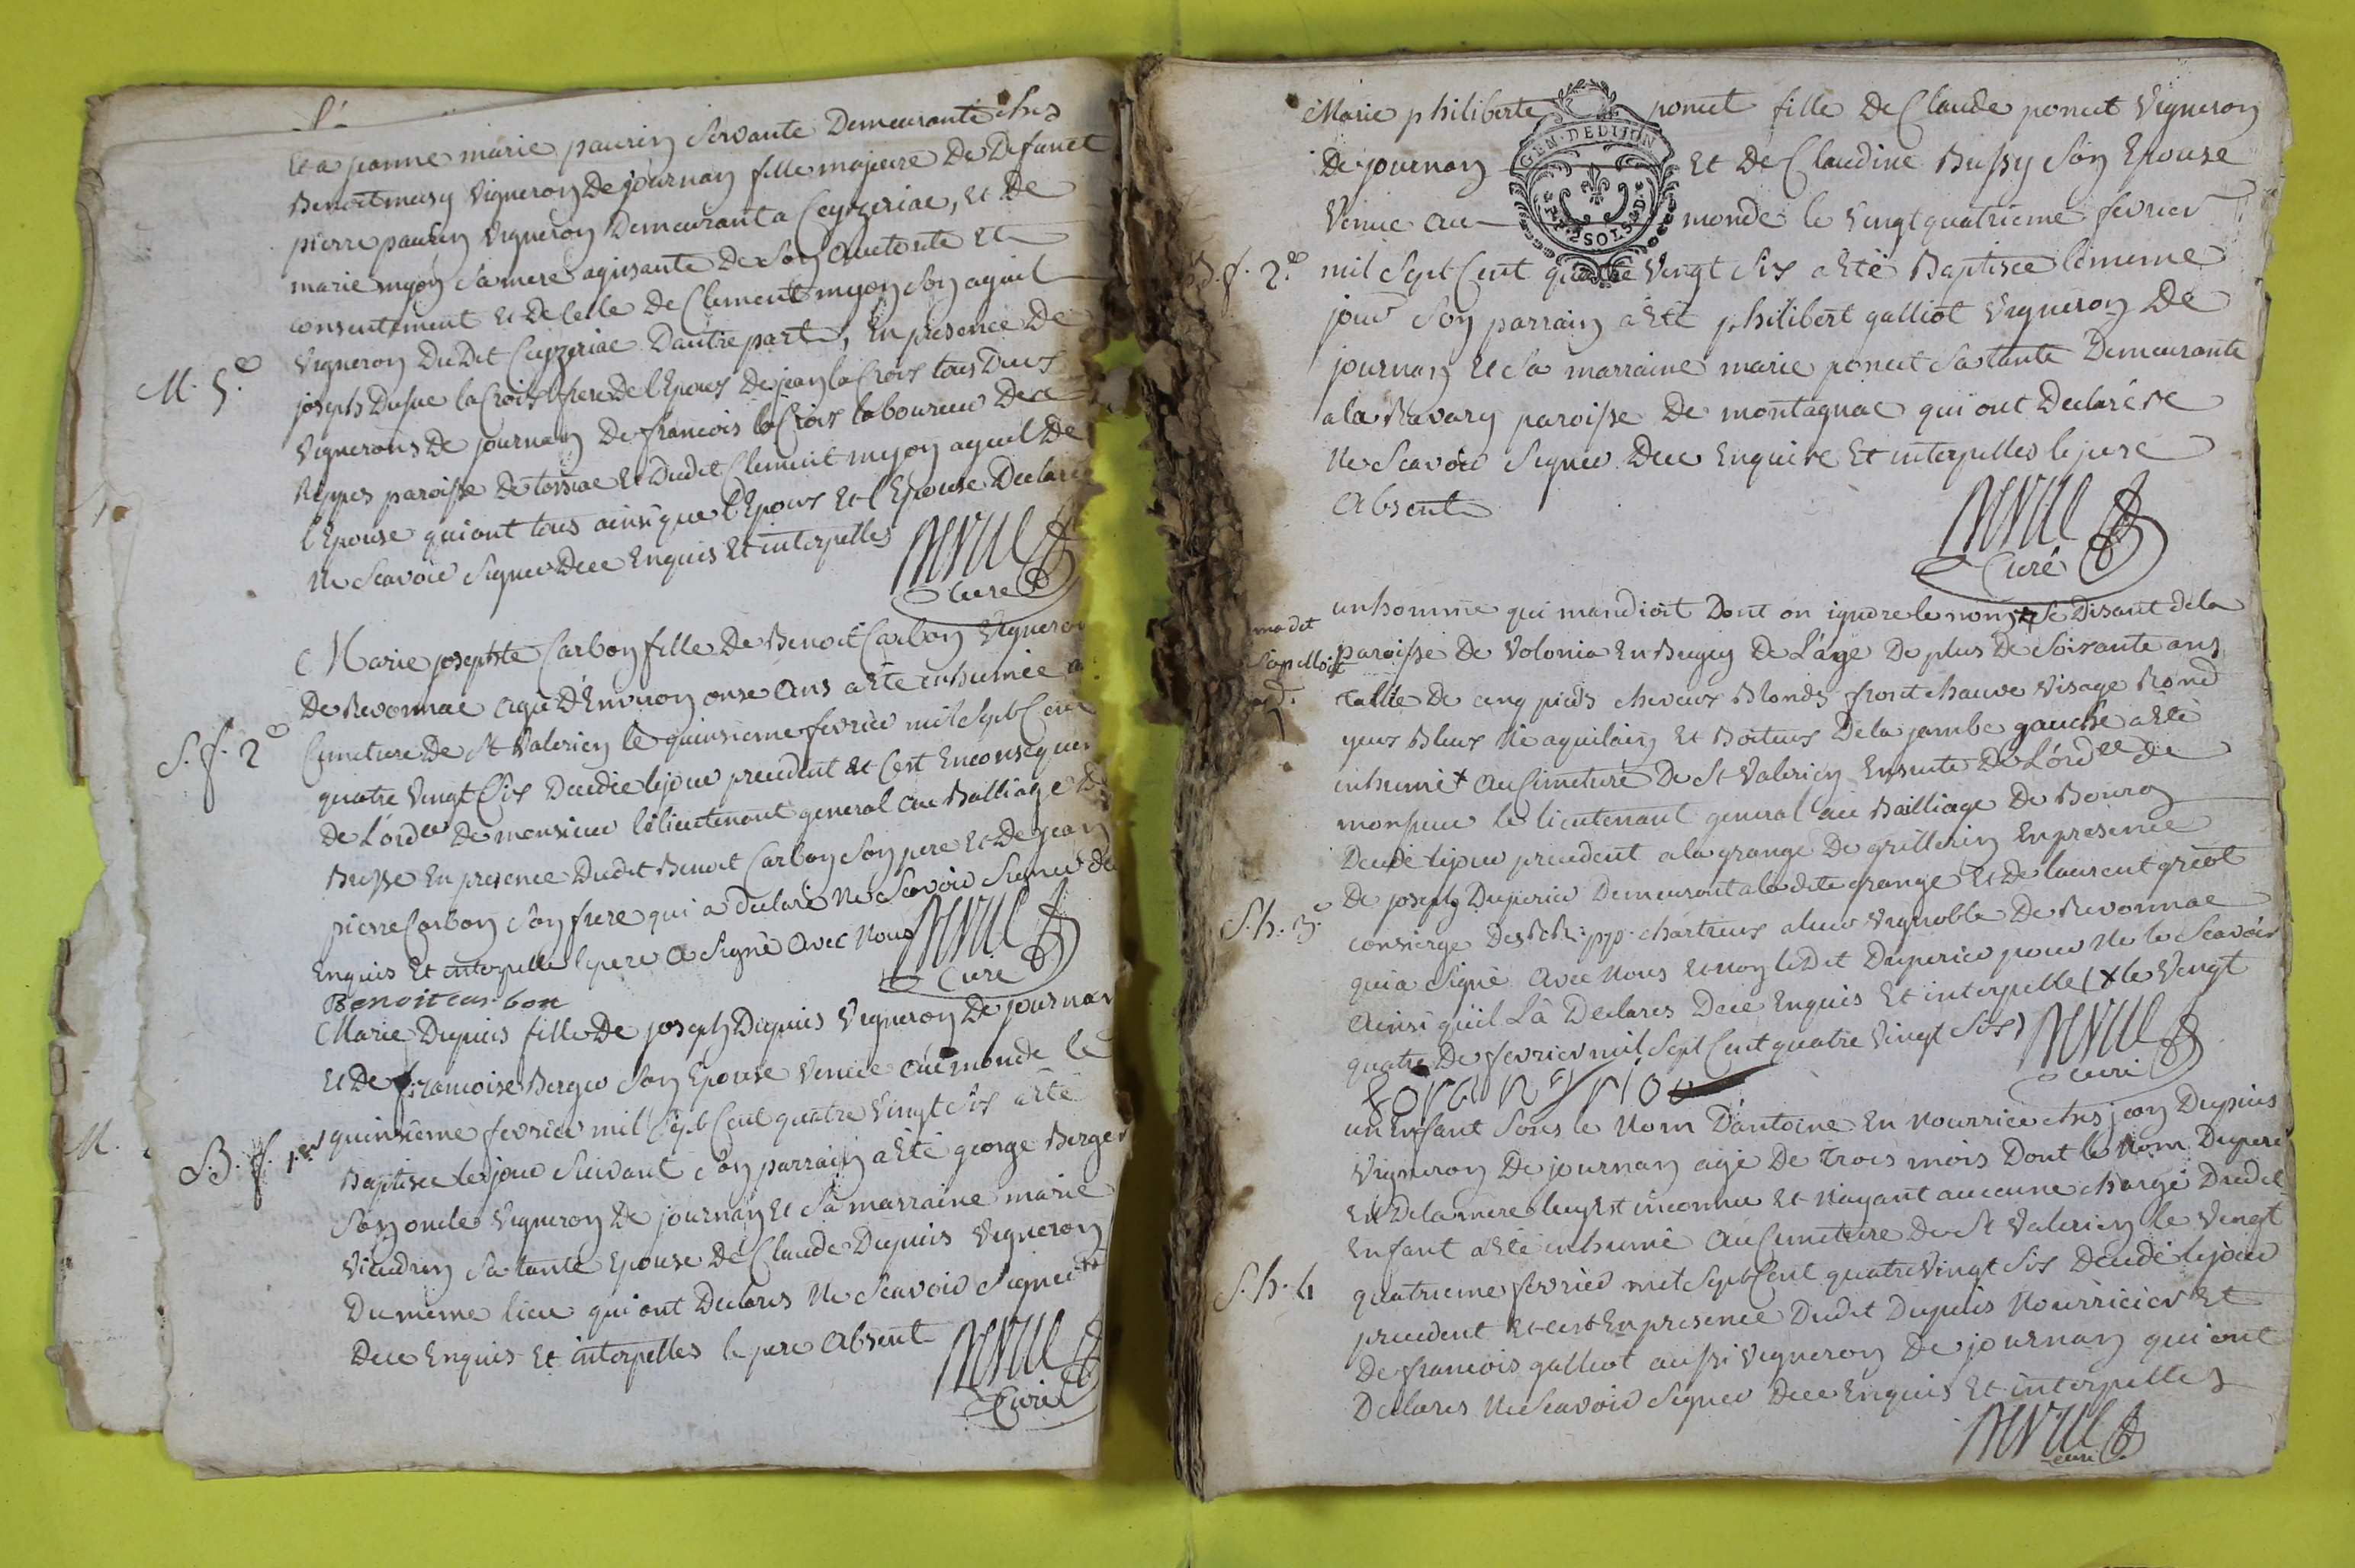 et a jeanne marie paurin servante Demeurante chés
Benoit mesy vigneron De journan fille majeure De Defunct
pierre paurin vigneron Demeurant a Ceyzeriac, et de
marie myon sa mere agissante De son authorité et
consentement et De celle de Clement myon son ayeul
vigneron Du Dit Ceyzeriac D'autre part, en presence De
joseph Dufue la Croix frere De l'Epoux De jean la Croix tous Deux
M. 5.e
vignerons De journan De francois la Croix laboureur De
paroisse De tossiac et Dudit Clement myon ayeul De
l'Epouse qui ont tous ainsi que l'Epoux et l'Epouse Declaré
ne scavoir signer De ce enquis et interpellés
curé
Marie josephte Carbon fille De Benoit Carbon vigneron
De Revonnac agée d'Environ onze ans a été inhumée au
S. f. 2e
Cimetiere De St Valerien le quinzieme fevrier mil sept Cent
quatre vingt six Decedée le jour precedent et c'est en consequen
de L'ord.ce De monsieur le lieutenant general au Balliage De
Bresse en presence Dudit Benoit Carbon son pere et De jean
pierre Carbon son frere qui a declaré ne scavoir signer de
enquis et interpellé le pere a signé avec nous
curé
Benoit carbon
Marie Dupuis fille De joseph Dupuis vigneron De journan
et De francoise Berger son Epouse venue au monde le
B. f. 1.er
quinzieme fevrier mil sept Cent quatre vingt six a été
Baptisée le jour suivant son parrain a été george Berger
son oncle vigneron De journan et sa marraine marie
viaudrin sa tante epouse De Claude Dupuis vigneron
Du meme lieu qui ont Declarés ne scavoir signer
De ce enquis et interpellés le pere absent
curé
M.
Marie philiberte poncet fille De Claude poncet vigneron
GEN. DE DIJON
SOLS
De journan et De Claudine Bussy son Epouse
venue au monde le vingt quatrieme fevrier
B. f. 2.e
mil sept Cent quatre vingt six a été Baptisée le meme
jour son parrain a été philibert galliot vigneron De
journan et sa marraine marie poncet sa tante Demeurante
a la Ravary paroisse De montagnac qui ont Declaré
ne scavoir signer De ce enquis et interpellés le pere
absent
curé
un homme qui mandioit Dont on ignore le nom se Disant de la
paroisse De Volonia en Bugey De L'age De plus De soixante ans
taille De cinq pieds cheveux Blonds front chauve visage Rond
yeux Bleux né aquilain et Boiteux De la jambe gauche a été
inhumé + au Cimetiere De St Valerien ensuite De L'ord.ce de
monsieur le lieutenant general au Bailliage De Bourg
Decedé le jour precedent a la grange De grillerin en presence
De joseph Duperier Demeurant a la dite grange et De laurent griot
S. h. 3.e
consierge Des RR: pp. chartreux a leur vignoble De Revonnac
qui a signé avec nous et non le Dit Duperier pour ne le scavoir
ainsi qu'il l'a Declarés De ce enquis et interpellé (+ le vingt
quatre De fevrier mil sept Cent quatre vingt six)
curé
un enfant sous le nom D'antoine en nourrice chés jean Dupuis
vigneron De journan agé De trois mois Dont le nom Du pere
et De la mere luy est inconnu et n'ayant aucune charge Dudit
enfant a été inhumé au Cimetiere De St Valerien le vingt
S. h. 4
quatrieme fevrier mil sept Cent quatre vingt six Decedé le jour
precedent et c'est en presence Dudit Dupuis nourricier et
De francois galliot aussi vigneron De journan qui ont
Declarés ne scavoir signer De ce enquis et interpellés
curé